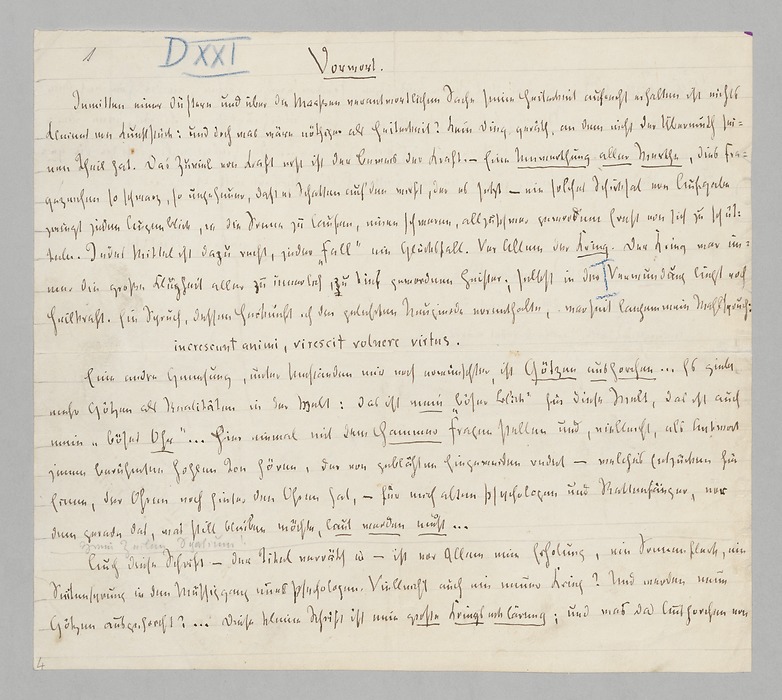 1
D XXI
Vorwort.
Inmitten einer düstern und über die Maassen verantwortlichen Sache seine Heiterkeit aufrecht erhalten ist nichts
Kleines von Kunststück: und doch was wäre nöthiger als Heiterkeit? Kein Ding geräth, an dem nicht der Übermuth sei-
nen Theil hat. Das Zuviel von Kraft erst ist der Beweis der Kraft. — Eine Umwerthung aller Werthe, dies Fra-
gezeichen so schwarz, so ungeheuer, dass es Schatten auf den wirft, der es setzt — ein solches Schicksal von Aufgabe
zwingt jeden Augenblick, in die Sonne zu laufen, einen schweren, allzuschwer gewordnen Ernst von sich zu schüt-
teln. Jedes Mittel ist dazu recht, jeder „Fall“ ein Glücksfall. Vor Allem der Krieg. Der Krieg war im-
mer die große Klugheit aller zu innerlich, zu tief gewordnen Geister; selbst in der Verwundung liegt noch
Heilkraft. Ein Spruch, dessen Herkunft ich der gelehrten Neugierde vorenthalte, war seit langem mein Wahlspruch:
increscunt animi, virescit volnere virtus.
Eine andre Genesung, unter Umständen mir noch erwünschter, ist Götzen aushorchen... Es giebt
mehr Götzen als Realitäten in der Welt: das ist mein „böser Blick“ für diese Welt, das ist auch
mein „böses Ohr“... Hier einmal mit dem Hammer Fragen stellen und, vielleicht, als Antwort
jenen berühmten hohlen Ton hören, der von geblähten Eingeweiden redet — welches Entzücken für
Einen, der Ohren noch hinter den Ohren hat, — für mich alten Psychologen und Rattenfänger, vor
dem gerade das, was still bleiben möchte, laut werden muß...
Auch diese Schrift — der Titel verräth es — ist vor Allem eine Erholung, ein Sonnenfleck, ein
Seitensprung in den Müssiggang eines Psychologen. Vielleicht auch ein neuer Krieg? Und werden neue
Götzen ausgehorcht?... Diese kleine Schrift ist eine große Kriegserklärung; und was das Aushorchen von
4